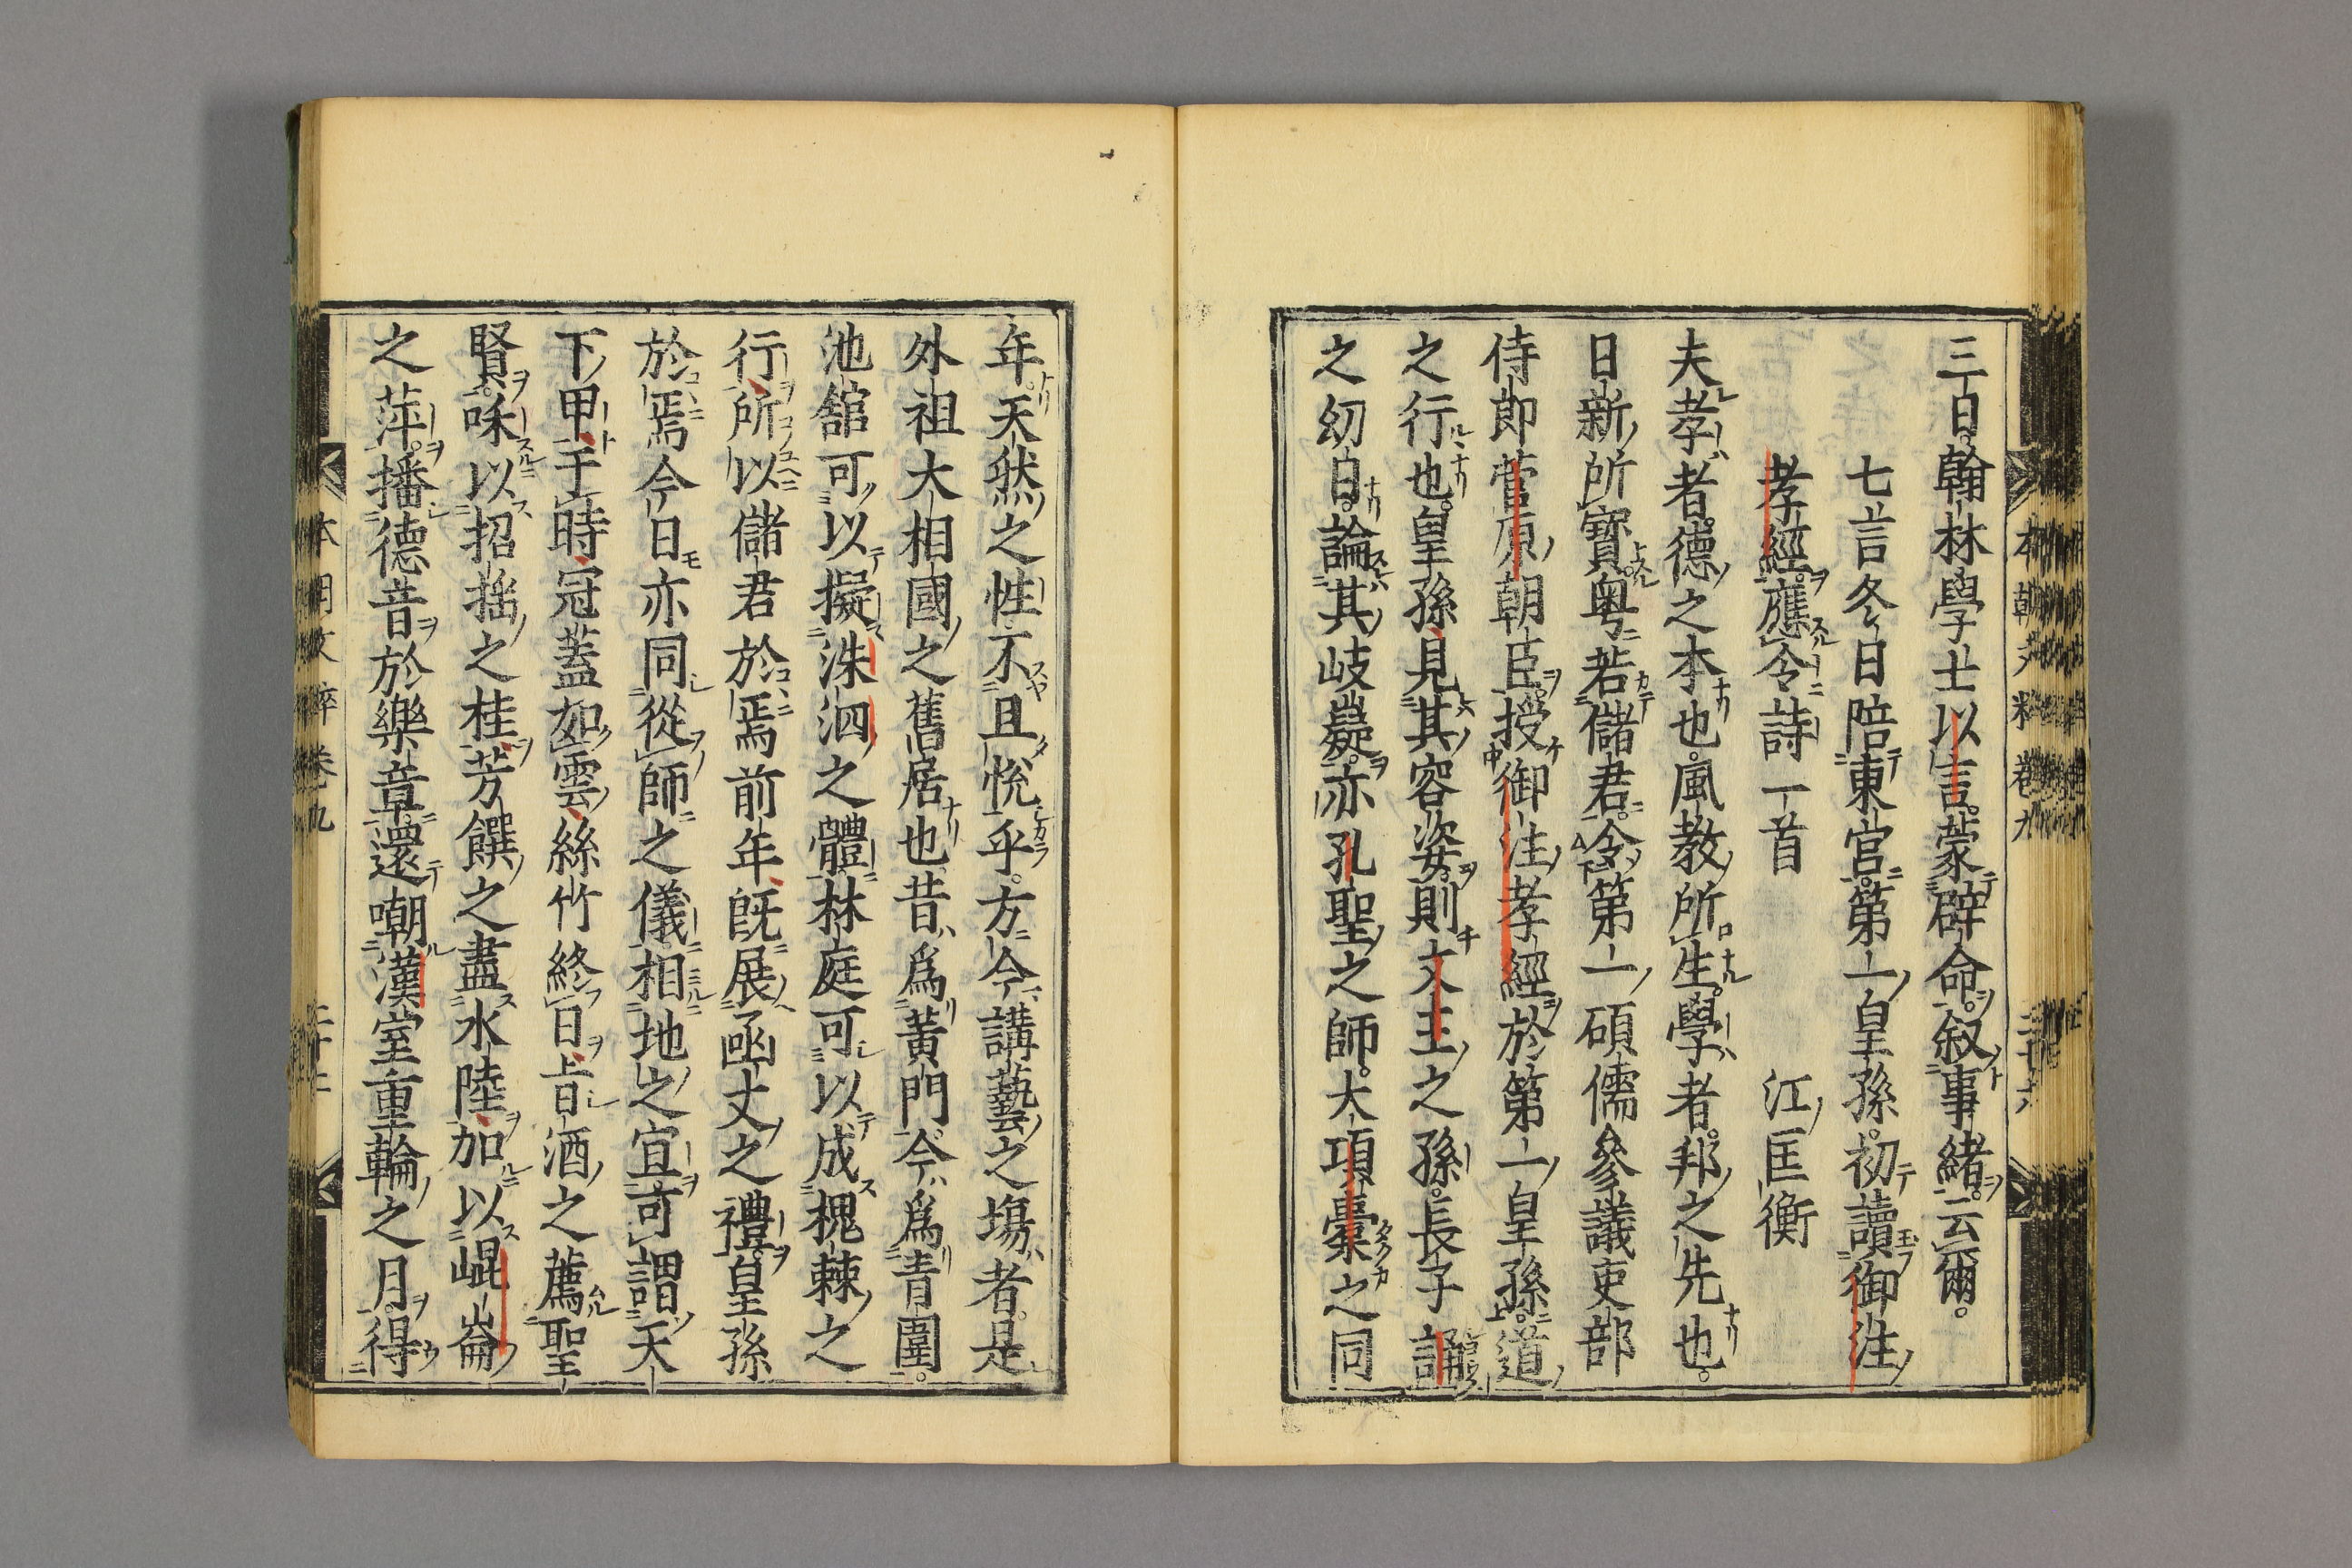 三百。翰林學士以言。蒙辟命。叙事緒。云爾。
七言冬日陪東宮。第一皇孫。初讀御注
孝經。應令詩一首　江匡衡
夫孝者。德之本也。風教所生。學者。邦之先也。
日新所寳。粤若儲君。令第一碩儒參議吏部
侍郎菅原朝臣。授御注孝經於第一皇孫。道
之行也。皇孫見其容姿。則文王之孫。長子誦
之幼日。論其岐嶷。亦孔聖之師。大項橐之同
年。天然之性。不且悦乎。方今講藝之塲者。是
外祖大相國之舊居也。昔爲黃門。今爲青闈。
池舘可以擬洙泗之體。林庭可以成槐棘之
行。所以儲君於焉前年既展函丈之禮。皇孫
於焉今日亦同從師之儀。相地之宜。可謂天
下甲。于時冠蓋如雲。絲竹終日。旨酒之薦聖
賢。味以招揺之桂。芳饌之盡水陸。加以崐崙
之萍。播德音於樂章。還嘲漢室重輪之月。得
本朝文粹卷九
二十六
本朝文粹卷九